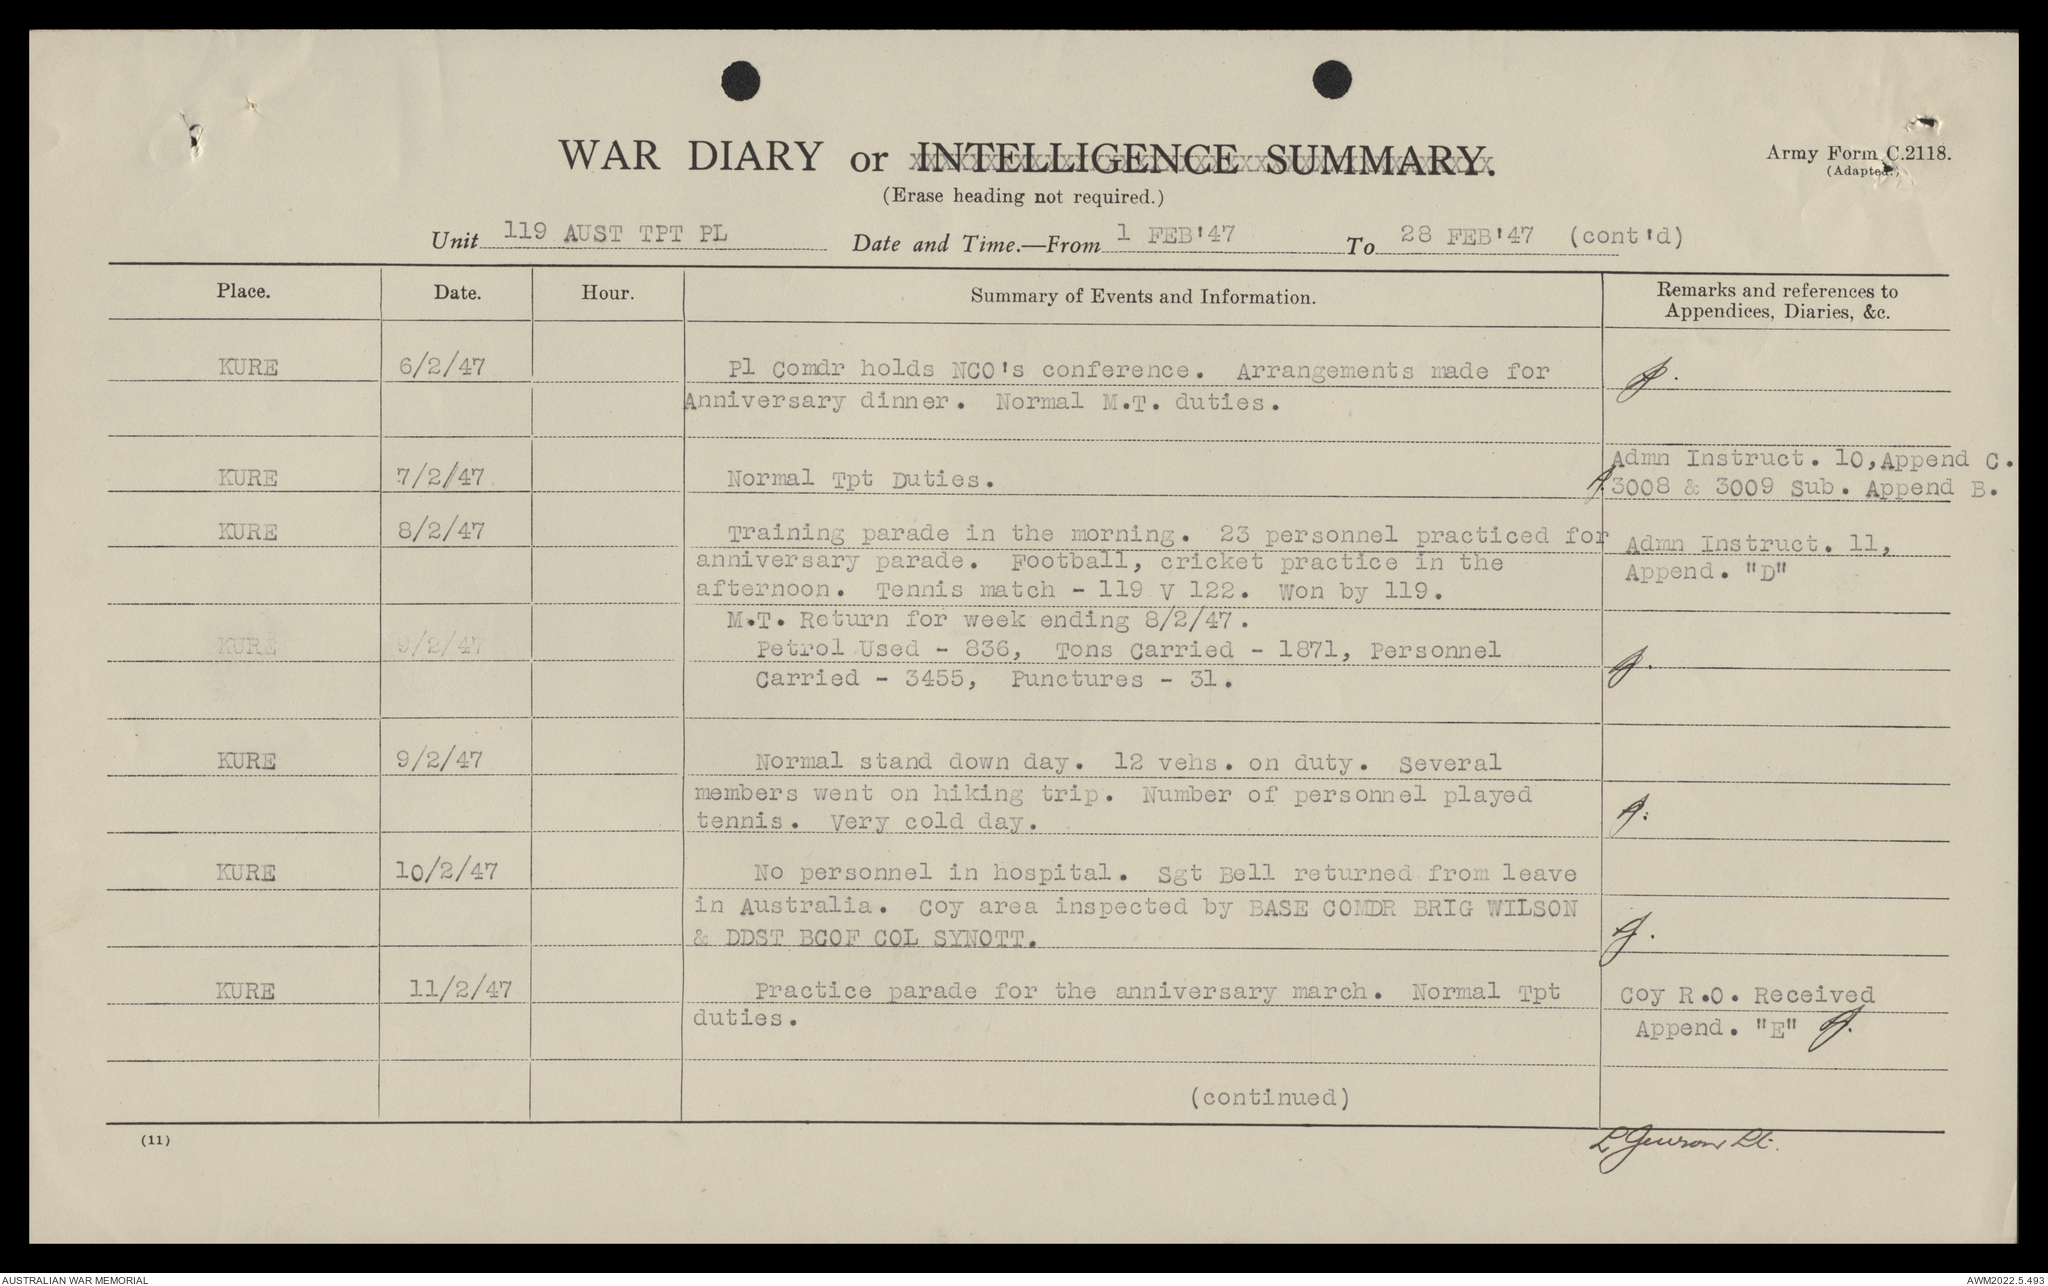 WAR DIARY or INTELLIGENCE SUMMARY.
Army Form C.2118.
(Adapted.)
(Erase heading not required.)
Unit 119 AUST TPT PL Date and Time.—From 1 FEB'47 To 28 FEB'47 (cont'd)
Place. Date. Hour. Summary of Events and Information. Remarks and references to
Appendices, Diaries, &c.
KURE 6/2/47 Pl Comdr holds NCO's conference. Arrangements made for
Anniversary dinner. Normal M.T. duties.
Admn Instruct. 10, Append C.
KURE 7/2/47 Normal Tpt Duties. 3008 & 3009 Sub. Append B.
KURE 8/2/47 Training parade in the morning. 23 personnel practiced for Admn Instruct. 11,
anniversary parade. Football, cricket practice in the Append. "D"
afternoon. Tennis match - 119 V 122. Won by 119.
M.T. Return for week ending 8/2/47.
KURE 9/2/47 Petrol Used - 836, Tons Carried - 1871, Personnel
Carried - 3455, Punctures - 31.
KURE 9/2/47 Normal stand down day. 12 vehs. on duty. Several
members went on hiking trip. Number of personnel played
tennis. Very cold day.
KURE 10/2/47 No personnel in hospital. Sgt Bell returned from leave
in Australia. Coy area inspected by BASE COMDR BRIG WILSON
& DDST BCOF COL SYNOTT.
KURE 11/2/47 Practice parade for the anniversary march. Normal Tpt Coy R.O. Received
duties. Append. "E"
(continued)
(11)
Lt.
AUSTRALIAN WAR MEMORIAL AWM2022.5.493